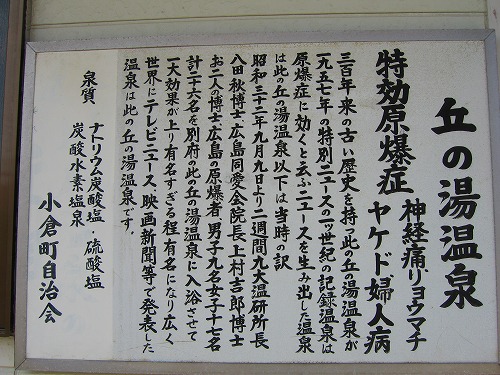 丘の湯温泉
特効原爆症 神経痛リョウマチ
ヤケド婦人病
三百年来の古い歴史を持つ此の丘の湯温泉が
一九五七年の特別ニュースの一ッ世紀の記録温泉は
原爆症に効くと云ふニュースを生み出した温泉
は此の丘の湯温泉以下は当時の訳
昭和三十二年九月九日より二週間九大温研所長
八田秋博士広島同愛会院長上村吉郎博士
お二人の博士広島の原爆者男子九名女子十七名
計二十六名を別府此の丘の湯温泉に入浴させて
一大効果が上り有名すぎる程有名になり広く
世界にテレビニュース映画新聞等で発表した
温泉は此の丘の湯温泉です。
泉質 ナトリウム炭酸塩・硫酸塩
炭酸水素塩泉
小倉町自治会